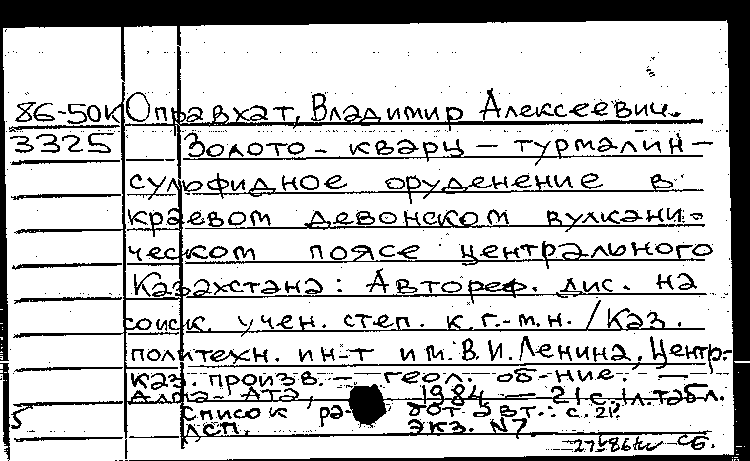 86-50К Оправхат, Владимир Алексеевич.
3325 Золото - кварц - турмалин -
сульфидное оруденение в
краевом девонском вулкани-
ческом поясе центрального
Казахстана: Автореф. дис. на
соиск. учен. степ. к.г.-м.н. /Каз.
политехн. ин-т им. В.И.Ленина, Центр.-
каз. произв. - геол. об-ние. -
Алма-Ата, 1984 - 21с., 1л. табл.
Список ра- бот авт.: с.
экз. N7.